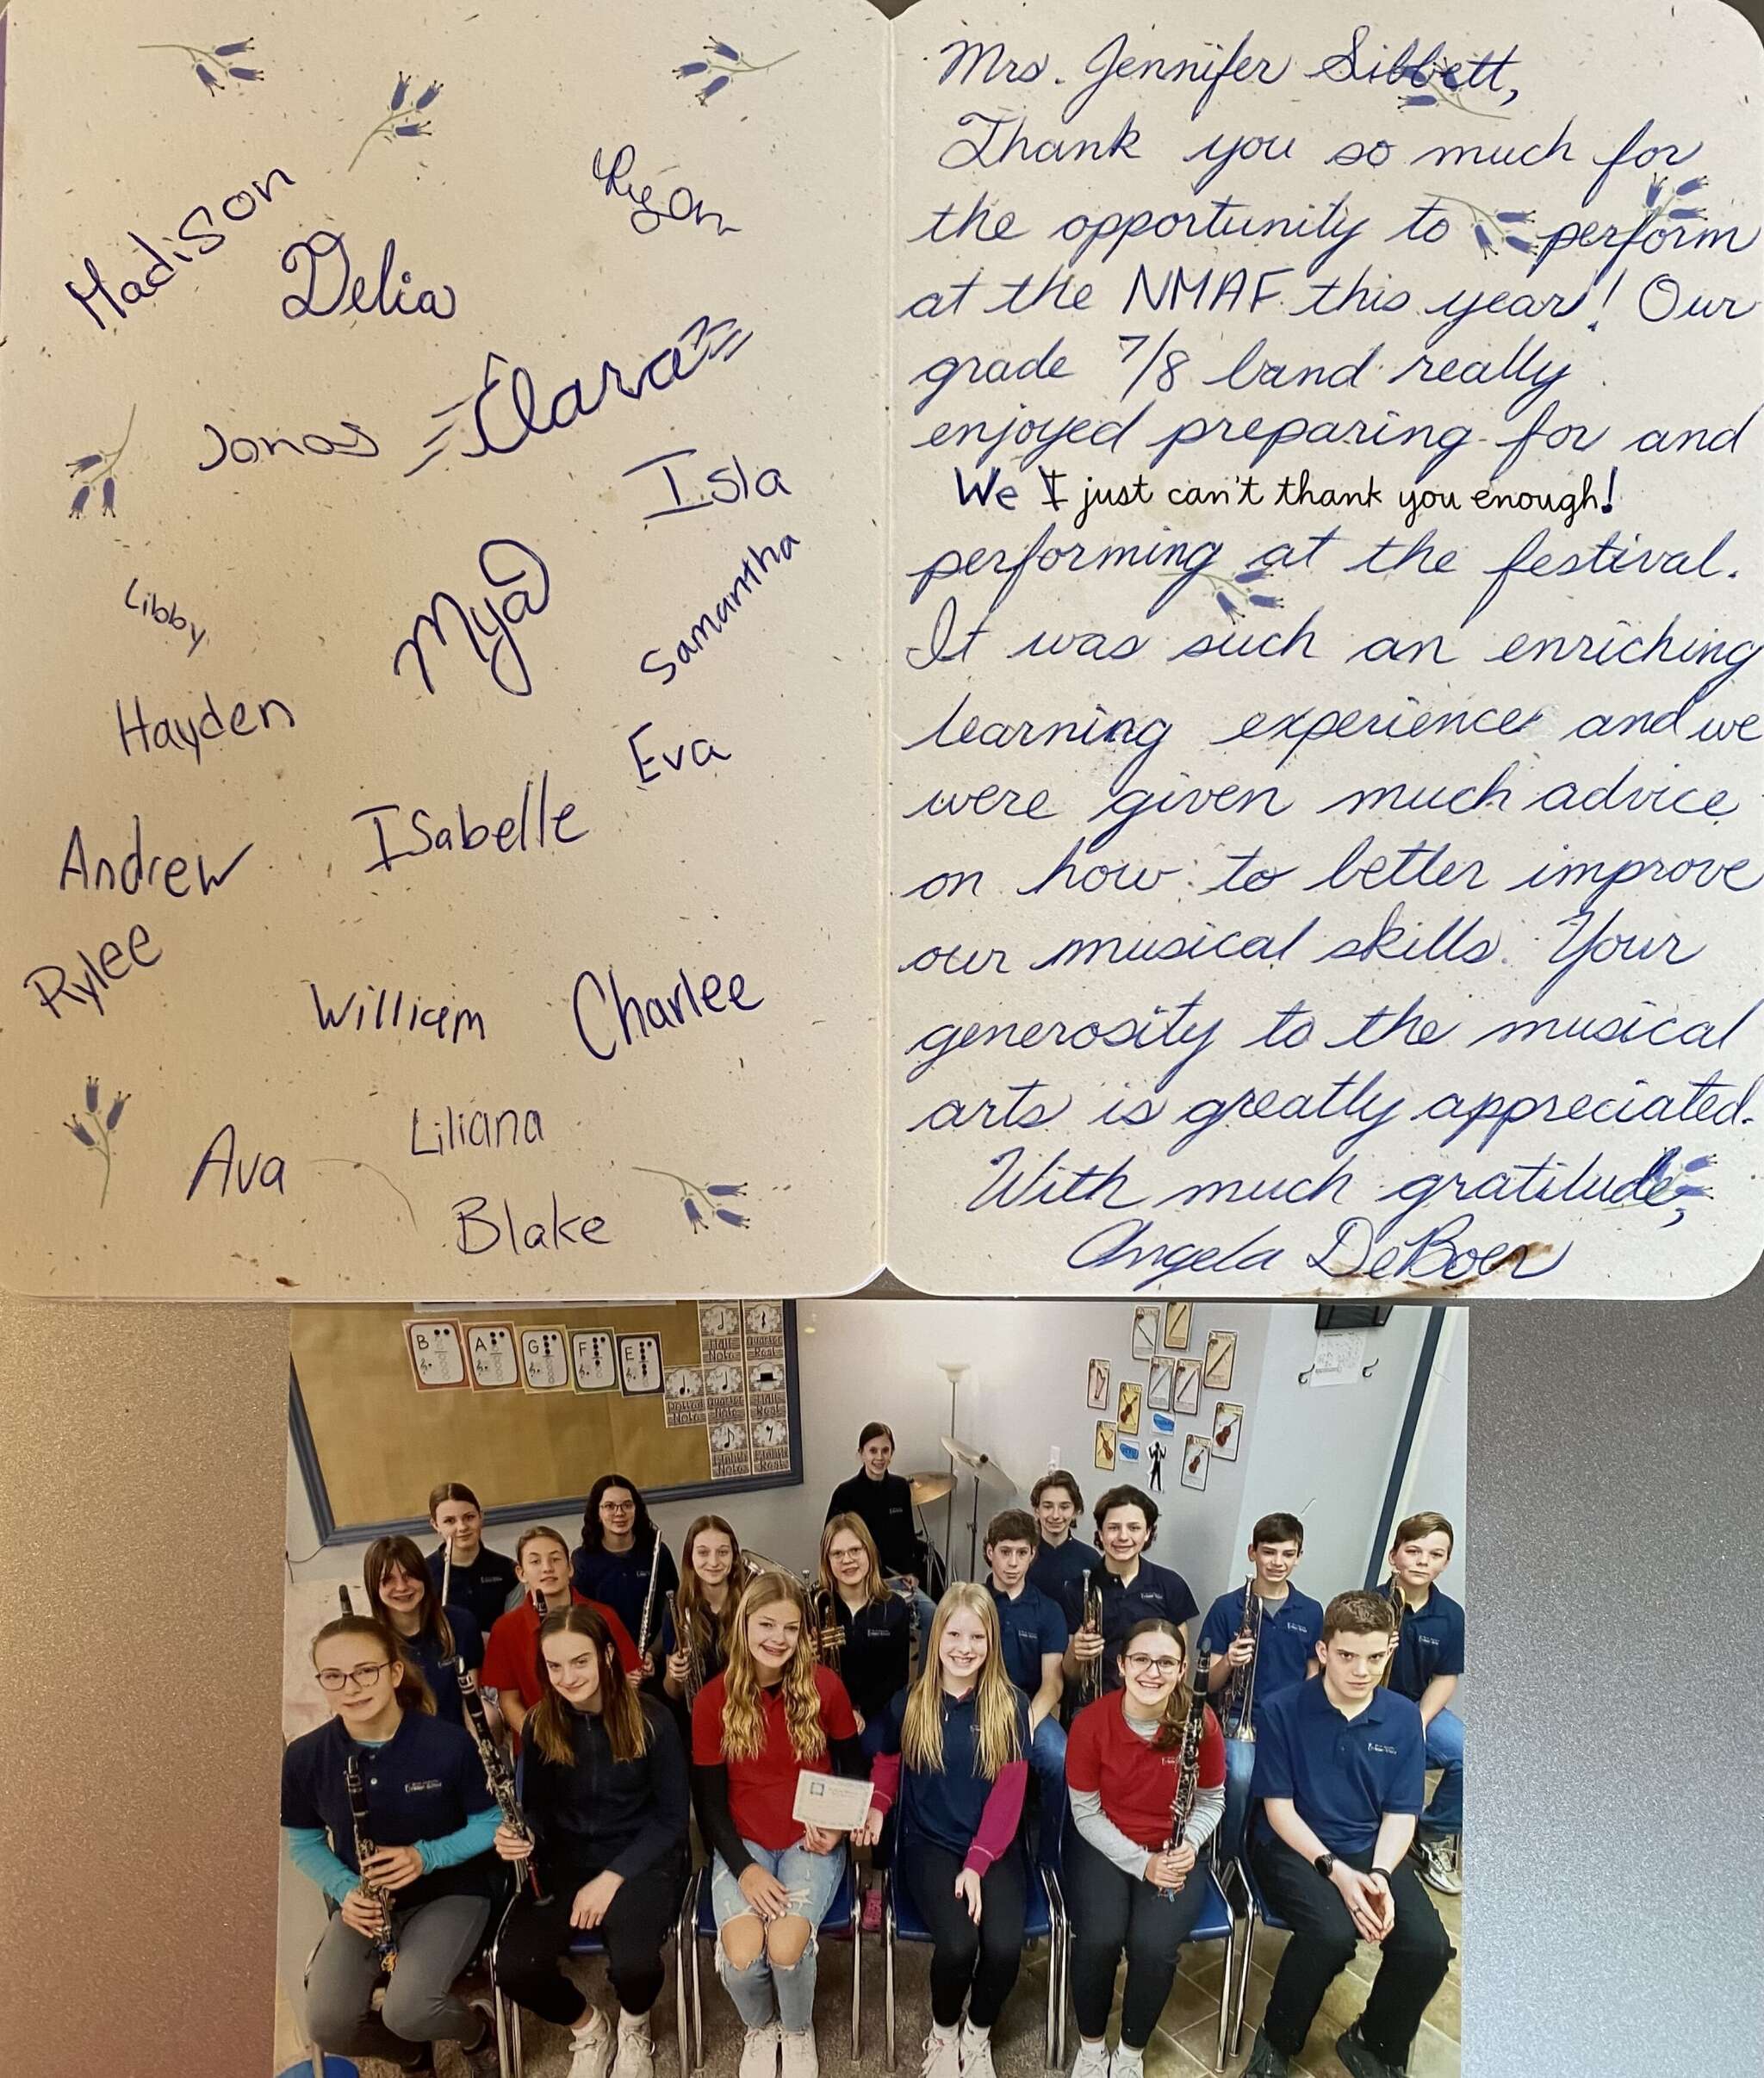 Madison
Ryan
Delia
Clara
Jonas
Isla
Samantha
Libby
Mya
Hayden
Eva
Andrew
Isabelle
Rylee
William
Charlee
Liliana
Ava
Blake
Mrs. Jennifer Sibbett,
Thank you so much for
the opportunity to perform
at the NMAF this year! Our
grade 7/8 band really
enjoyed preparing for and
We I just can't thank you enough!
performing at the festival.
It was such an enriching
learning experience and we
were given much advice
on how to better improve
our musical skills. Your
generosity to the musical
arts is greatly appreciated.
With much gratitude,
Angela DeBoer
B A G F E
Half Note
Quarter Rest
Dotted Note
Quarter Note
Half Rest